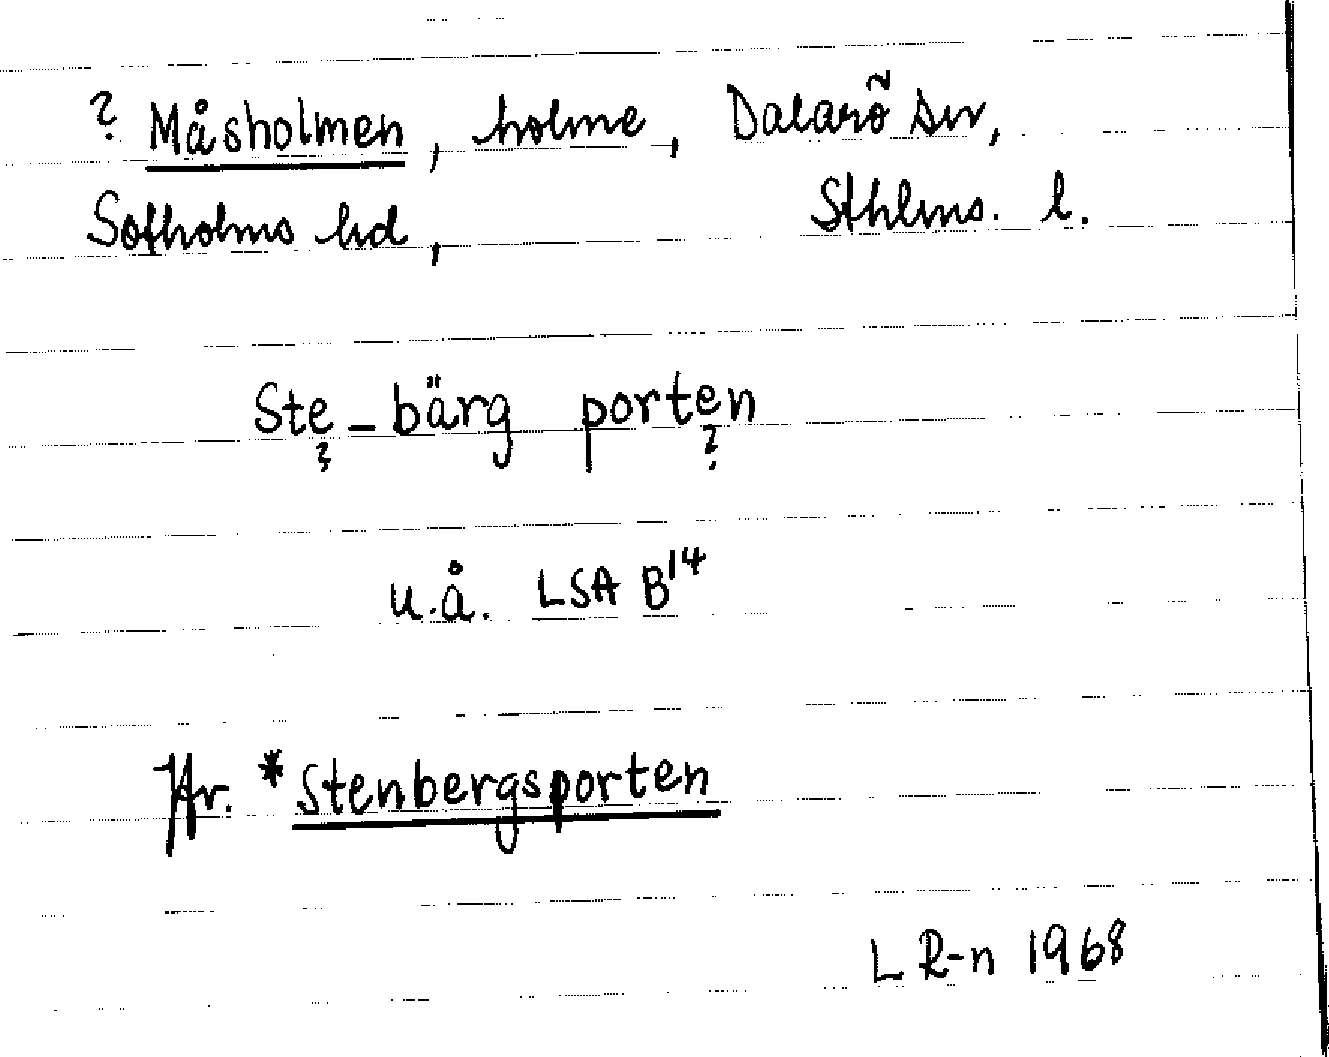 ? Måsholmen, holme, Dalarö sn,
Sotholms hd, Sthlms. l.
Ste_bärg porten
? ?
u.å. LSA B14
Hr. *Stenbergsporten
L R-n 1968